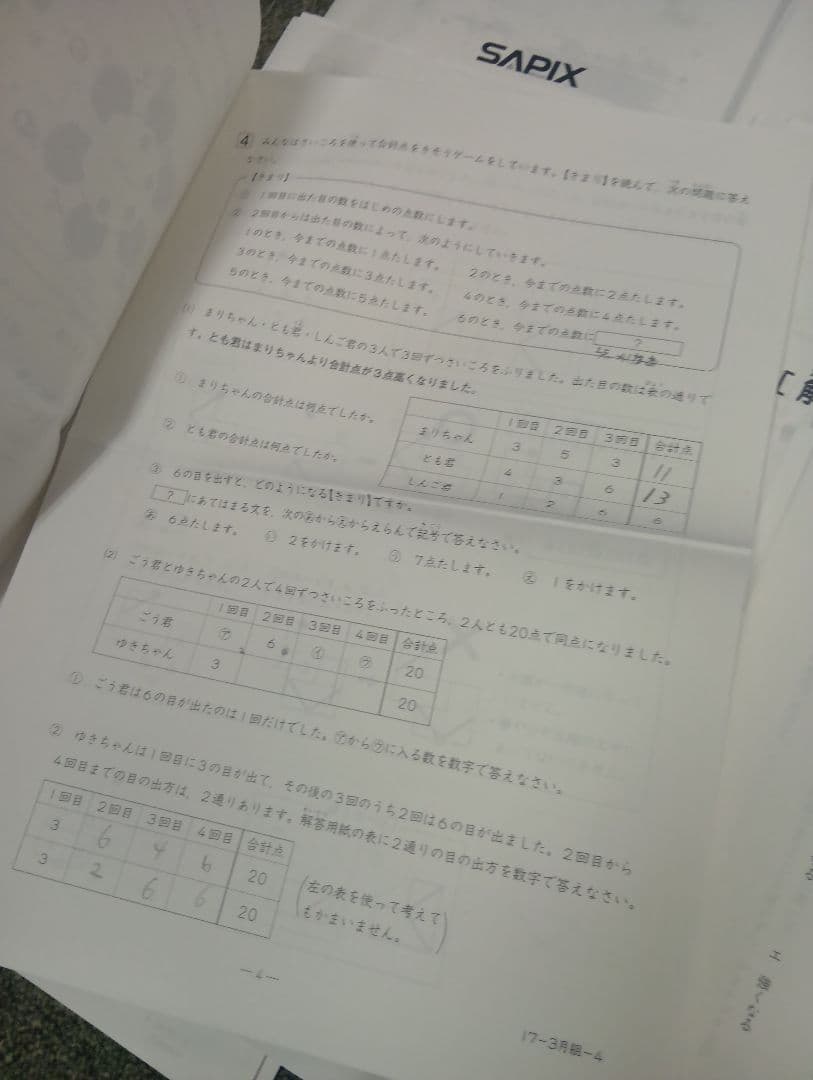 SAPIX
4 みんなはさいころを使って合計点をきそうゲームをしています。【きまり】を読んで、次の問題に答え
なさい。
【きまり】
① 1回目に出た目の数をはじめの点数にします。
② 2回目からは出た目の数によって、次のようにしていきます。
1のとき、今までの点数に1点たします。 2のとき、今までの点数に2点たします。
3のとき、今までの点数に3点たします。 4のとき、今までの点数に4点たします。
5のとき、今までの点数に5点たします。 6のとき、今までの点数に ?
(1) まりちゃん・とも君・しんご君の3人で3回ずつさいころをふりました。出た目の数は表の通りで
す。とも君はまりちゃんより合計点が3点高くなりました。
① まりちゃんの合計点は何点でしたか。
② とも君の合計点は何点でしたか。
1回目 2回目 3回目 合計点
まりちゃん 3 5 3 11
とも君 4 3 6 13
しんご君 1 2 6 6
③ 6の目を出すと、どのようになる【きまり】ですか。
? にあてはまる文を、次のあからえからえらんで記号で答えなさい。
あ 6点たします。 い 2をかけます。 う 7点たします。 え 1をかけます。
(2) ごう君とゆきちゃんの2人で4回ずつさいころをふったところ、2人とも20点で同点になりました。
1回目 2回目 3回目 4回目 合計点
ごう君 ㋐ 6 ㋑ ㋒ 20
ゆきちゃん 3 20
① ごう君は6の目が出たのは1回だけでした。㋐から㋒に入る数を数字で答えなさい。
② ゆきちゃんは1回目に3の目が出て、その後の3回のうち2回は6の目が出ました。2回目から
4回目までの目の出方は、2通りあります。解答用紙の表に2通りの目の出方を数字で答えなさい。
1回目 2回目 3回目 4回目 合計点
3 6 4 6 20
3 2 6 6 20
(左の表を使って考えて
もかまいません。)
—4—
17-3月組-4